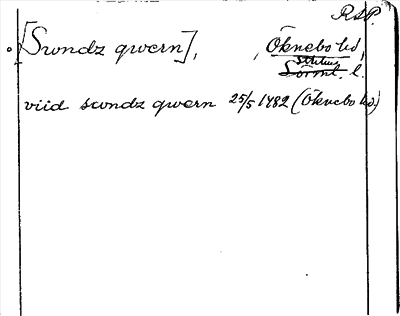 RSP.
[Swndz qwern], , Öknebo hd,
Sörml. l.
viid swndz qwern 25/5 1482 (Öknebo hd)